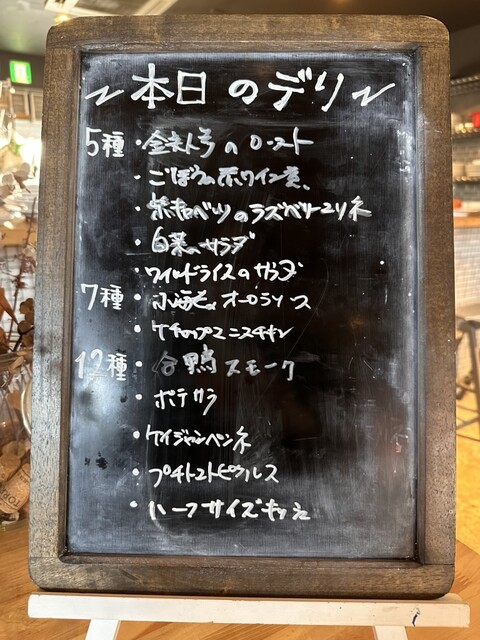 ~本日のデリ~
5種・金糸人参のロースト
・ごぼうの赤ワイン煮
・紫キャベツのラズベリーマリネ
・白菜のサラダ
・ワイルドライスのサラダ
7種・小海老オーロラソース
・ケチャップマニスチキン
12種・合鴨スモーク
・ポテサラ
・ケイジャンペンネ
・プチトマトピクルス
・ハーフサイズキッシュ